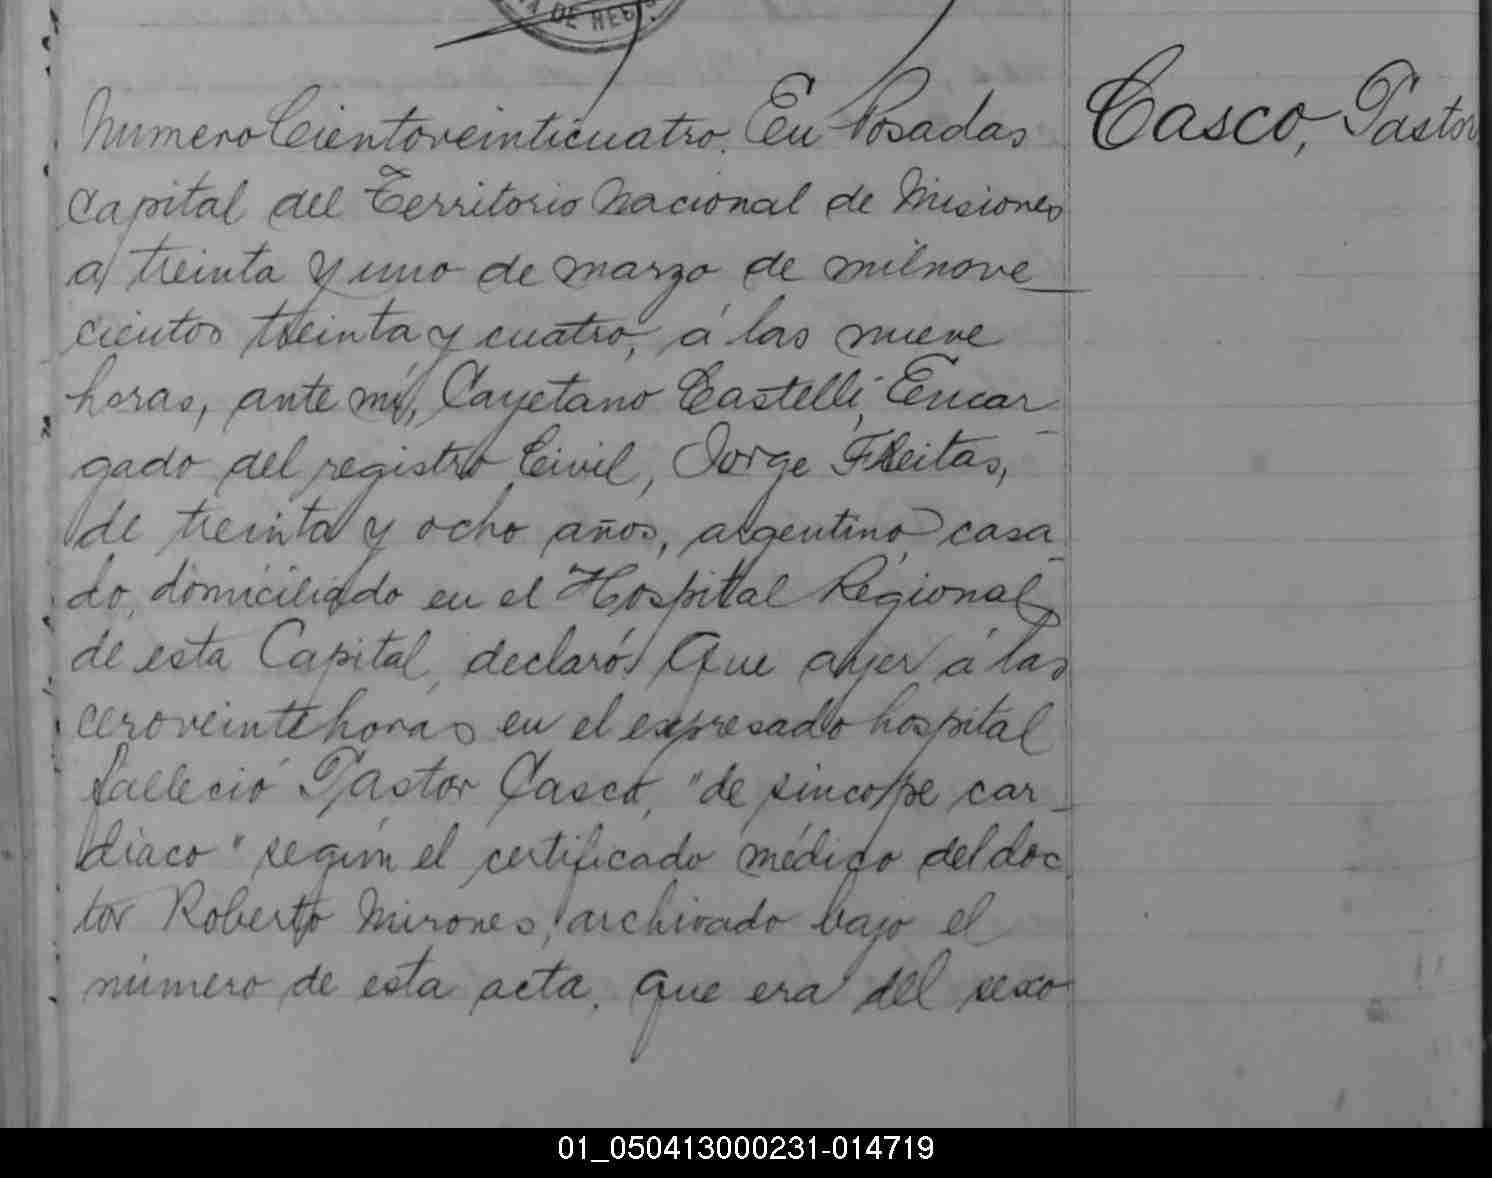 A DE REG
Numero Cientoveinticuatro. En Posadas
Casco, Pastor
Capital del Territorio Nacional de Misiones
a treinta y uno de marzo de milnove_
cientos treinta y cuatro, á las nueve
horas, ante mi, Cayetano Castelli, Encar_
gado del registro Civil, Jorge Freitas,
de treinta y ocho años, argentino casa_
do, domiciliado en el Hospital Regional
de esta Capital, declaró: Que ayer á las
ceroveintehoras en el expresado hospital
falleció Pastor Casco, "de sincope car_
diaco" según el certificado médico del doc_
tor Roberto Mirones, archivado bajo el
número de esta acta. Que era del sexo
01_050413000231-014719